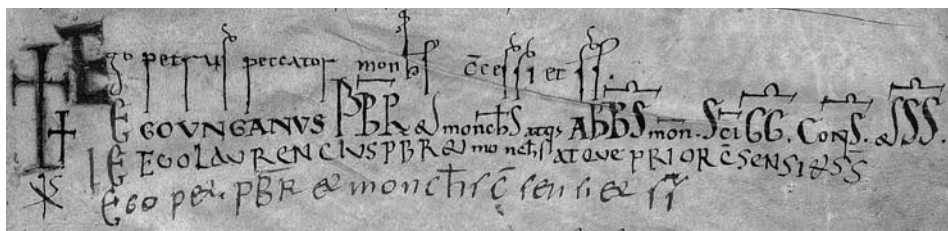 Ego petrus peccator monhs c̄cessi et ss.
EGO VNGANVS PBR & monchs atqs ABBS mon. Sci GG. ConS. & SSS.
EGO LAVRENCIVS PBR & monchs ATQVE PRIOR C̄SENSI & SS
Ego pet. PBR & monchs c̄sensi & ss